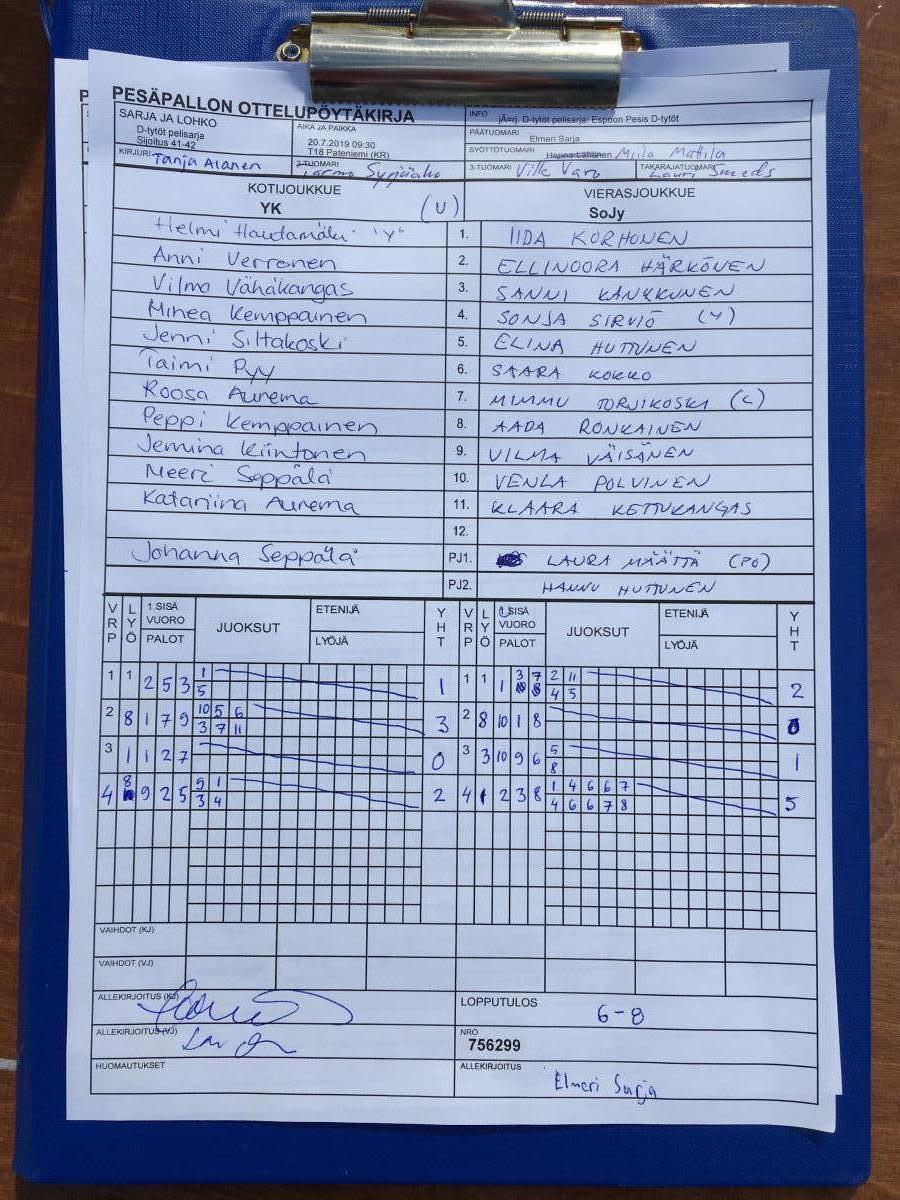 PESÄPALLON OTTELUPÖYTÄKIRJA
SARJA JA LOHKO
D-tytöt pelisarja
Sijoitus 41-42
AIKA JA PAIKKA
20.7.2019 09:30
T18 Pateniemi (KR)
INFO
jÄerj. D-tytöt pelisarja: Espoon Pesis D-tytöt
PÄÄTUOMARI Elmeri Sarja
SYÖTTÖTUOMARI Miila Mattila
KIRJURI Tanja Alanen
2-TUOMARI Tarmo
3-TUOMARI Ville Varo
TAKARAJATUOMARI Lauri Smeds
KOTIJOUKKUE
YK (U)
VIERASJOUKKUE
SoJy
Helmi Haudamäki "Y" 1. IIDA KORHONEN
Anni Verronen 2. ELLINOORA HÄRKÖNEN
Vilma Vähäkangas 3. SANNI KANKKUNEN
Minea Kemppainen 4. SONJA SIRVIÖ (4)
Jenni Siltakoski 5. ELINA HUTTUNEN
Taimi Pyy 6. SAARA KOKKO
Roosa Aurema 7. MIMMU TORNIKOSKI (L)
Peppi Kemppainen 8. AADA RONKAINEN
Jemina Kiintonen 9. VILMA VÄISÄNEN
Meeri Seppälä 10. VENLA POLVINEN
Katariina Aurema 11. KLAARA KETTUKANGAS
12.
Johanna Seppälä PJ1. LAURA MÄÄTTÄ (PO)
PJ2. HANNU HUTTUNEN
VRP LYÖ 1.SISÄ VUORO PALOT JUOKSUT ETENIJÄ LYÖJÄ YHT VRP LYÖ 1.SISÄ VUORO PALOT JUOKSUT ETENIJÄ LYÖJÄ YHT
1 1 2 5 3 1 5 1 1 1 1 3 7 8 2 11 4 5 2
2 8 1 7 9 10 5 6 3 7 11 3 2 8 10 1 8 0
3 1 1 2 7 0 3 3 10 9 6 5 8 1
4 8 9 2 5 5 1 3 4 2 4 1 2 3 8 1 4 6 6 7 4 6 6 7 8 5
VAIHDOT (KJ)
VAIHDOT (VJ)
ALLEKIRJOITUS (KJ)
LOPPUTULOS 6-8
ALLEKIRJOITUS (VJ)
NRO
756299
HUOMAUTUKSET
ALLEKIRJOITUS Elmeri Sarja